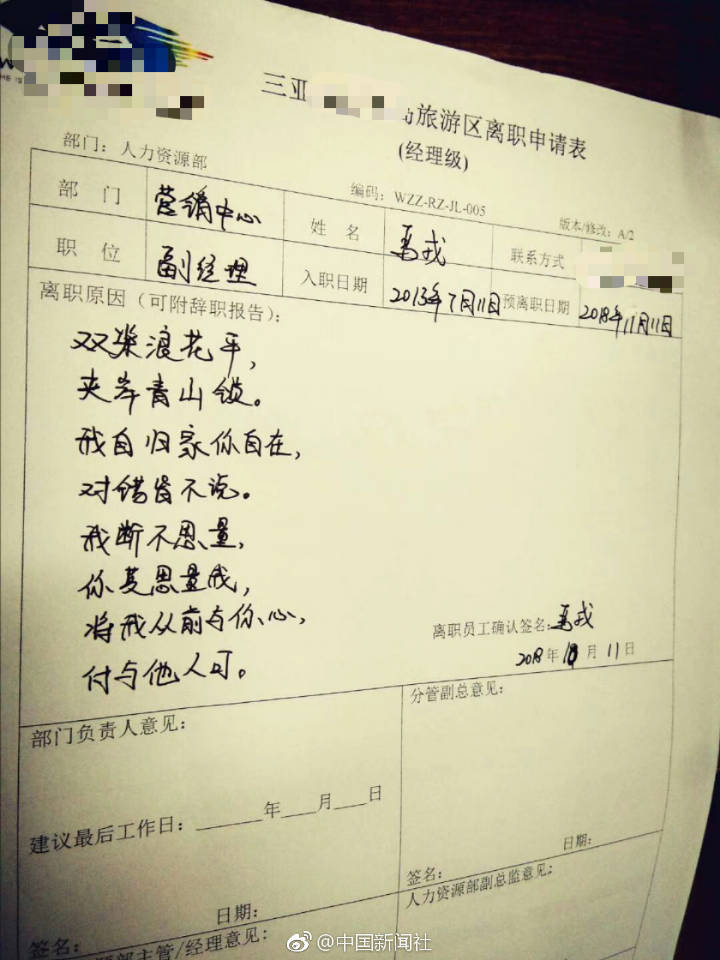 三亚
旅游区离职申请表
(经理级)
部门：人力资源部
编码：WZZ-RZ-JL-005
版本/修改：A/2
部 门 营销中心 姓 名 联系方式
职 位 副经理 入职日期 2013年7月11日 预离职日期 2018年11月11日
离职原因（可附辞职报告）：
双桨浪花平，
夹岸青山锁。
我自归家你自在，
对错皆不说。
我断不思量，
你莫思量我，
将我从前与你心，
付与他人可。
离职员工确认签名：
2018年10月11日
部门负责人意见：
建议最后工作日：______年___月___日
日期：
签名：
分管副总意见：
日期：
签名：
人力资源部副总监意见：
部主管/经理意见：
@中国新闻社